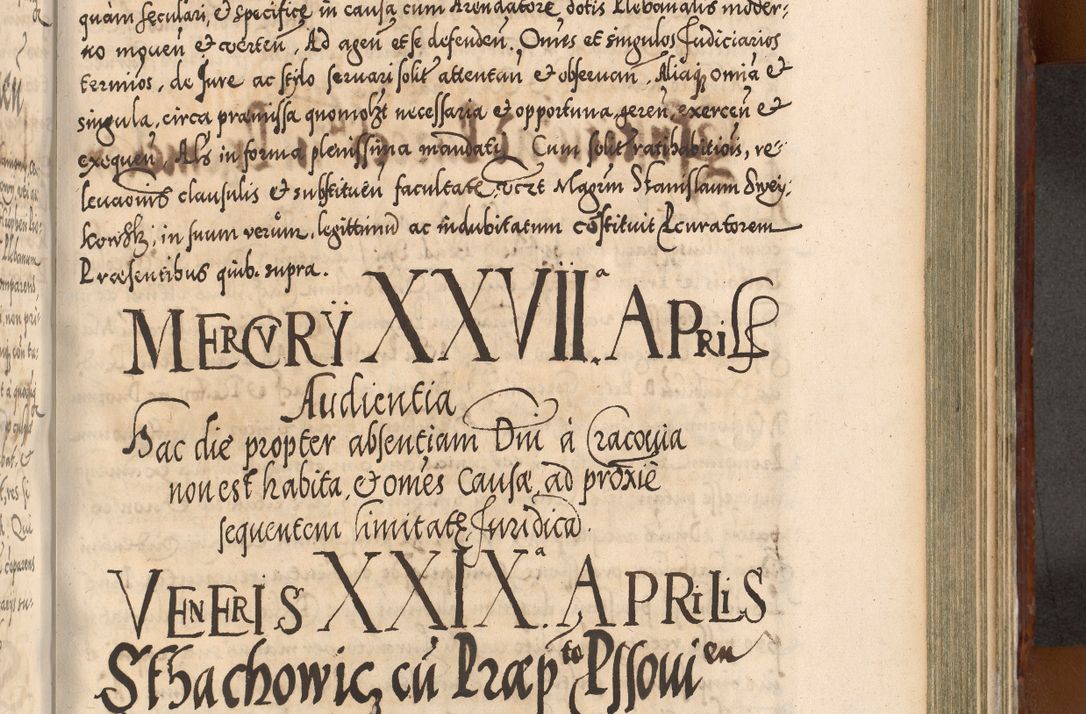 quam seculari, et specifice in causa cum Arendatore dotis Plebanalis moder-
no moveñ et verteñ. Ad ageñ et se defendeñ. Omes et singulos Judiciarios
termios, de Jure ac stylo servari solit attentañ et observañ. Aliaq omia et
singula, circa præmissa quomolzt necessaria et opportuna gereñ, exerceñ et
exequeñ. Als in forma plenissima mandati. Cum solit ratihabitiois, re-
levaonis clausulis et substitueñ facultate. Vczt Magrm Stanislaum Swey-
kowsk; in suum verum, legittimu ac indubitatum costituit Pcuratorem
Præsentibus quib. supra.
MERCVRY XXVII.ª APRilis
Audientia
Hac die propter absentiam Dni à Cracovia
non est habita, et omes Causæ ad proxie
sequentem limitatę Juridica.
VENERIS XXIX.ª APRILIS
Sthachowic, cũ Præpto Pssovien